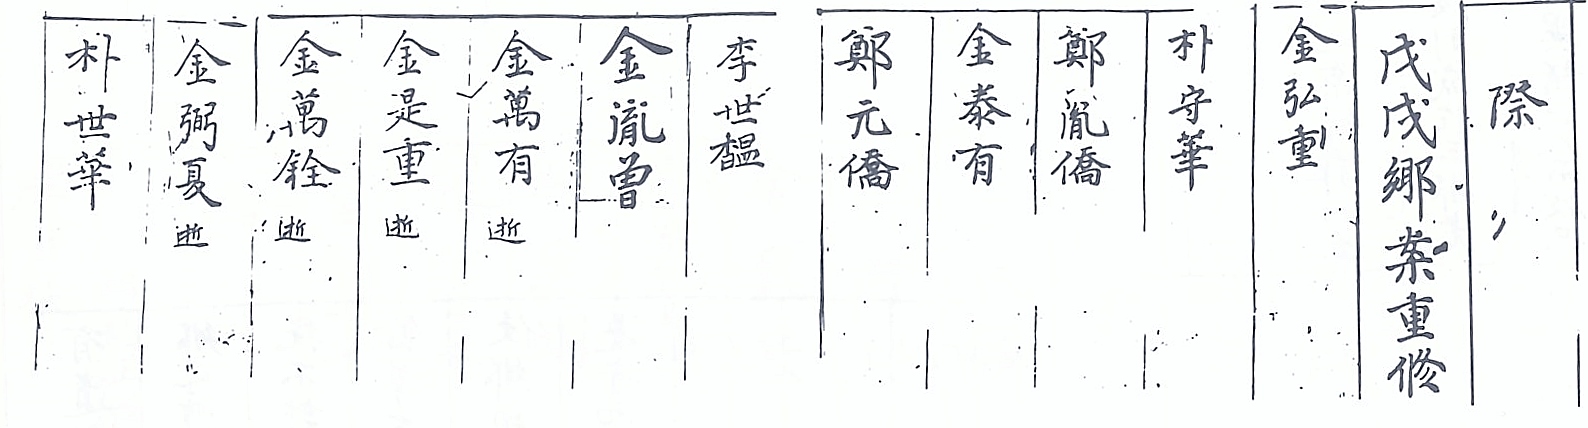 際
戊戌鄉案重修
金弘重
朴守華
鄭胤僑
金泰有
鄭元僑
李世韞
金胤曾
金萬有 逝
金是重 逝
金萬銓 逝
金弼夏 逝
朴世華